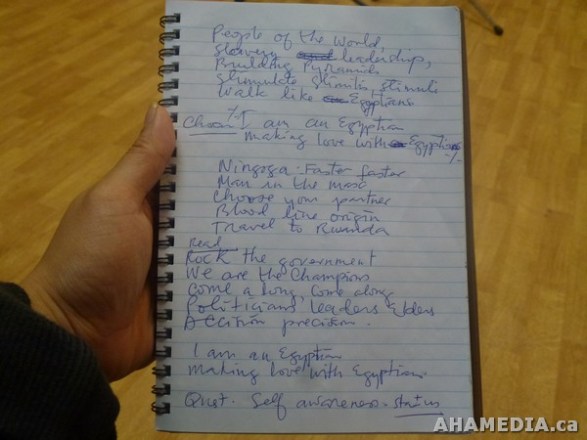 People of the World,
Slavery leadership,
Building Pyramids
Stimulate Stimuli, stimuli
Walk like Egyptians
Chorus I am an Egyptian
making love with Egyptians
Faster faster
Man in the
Choose your partner
Blood line origin
Travel to Rwanda
Read
Rock the government
We are the Champions
Come along, Come along
Politicians leaders Elders
precision.
I am an Egyptian
making love with Egyptians
Quot. Self awareness - status
AHAMEDIA.ca